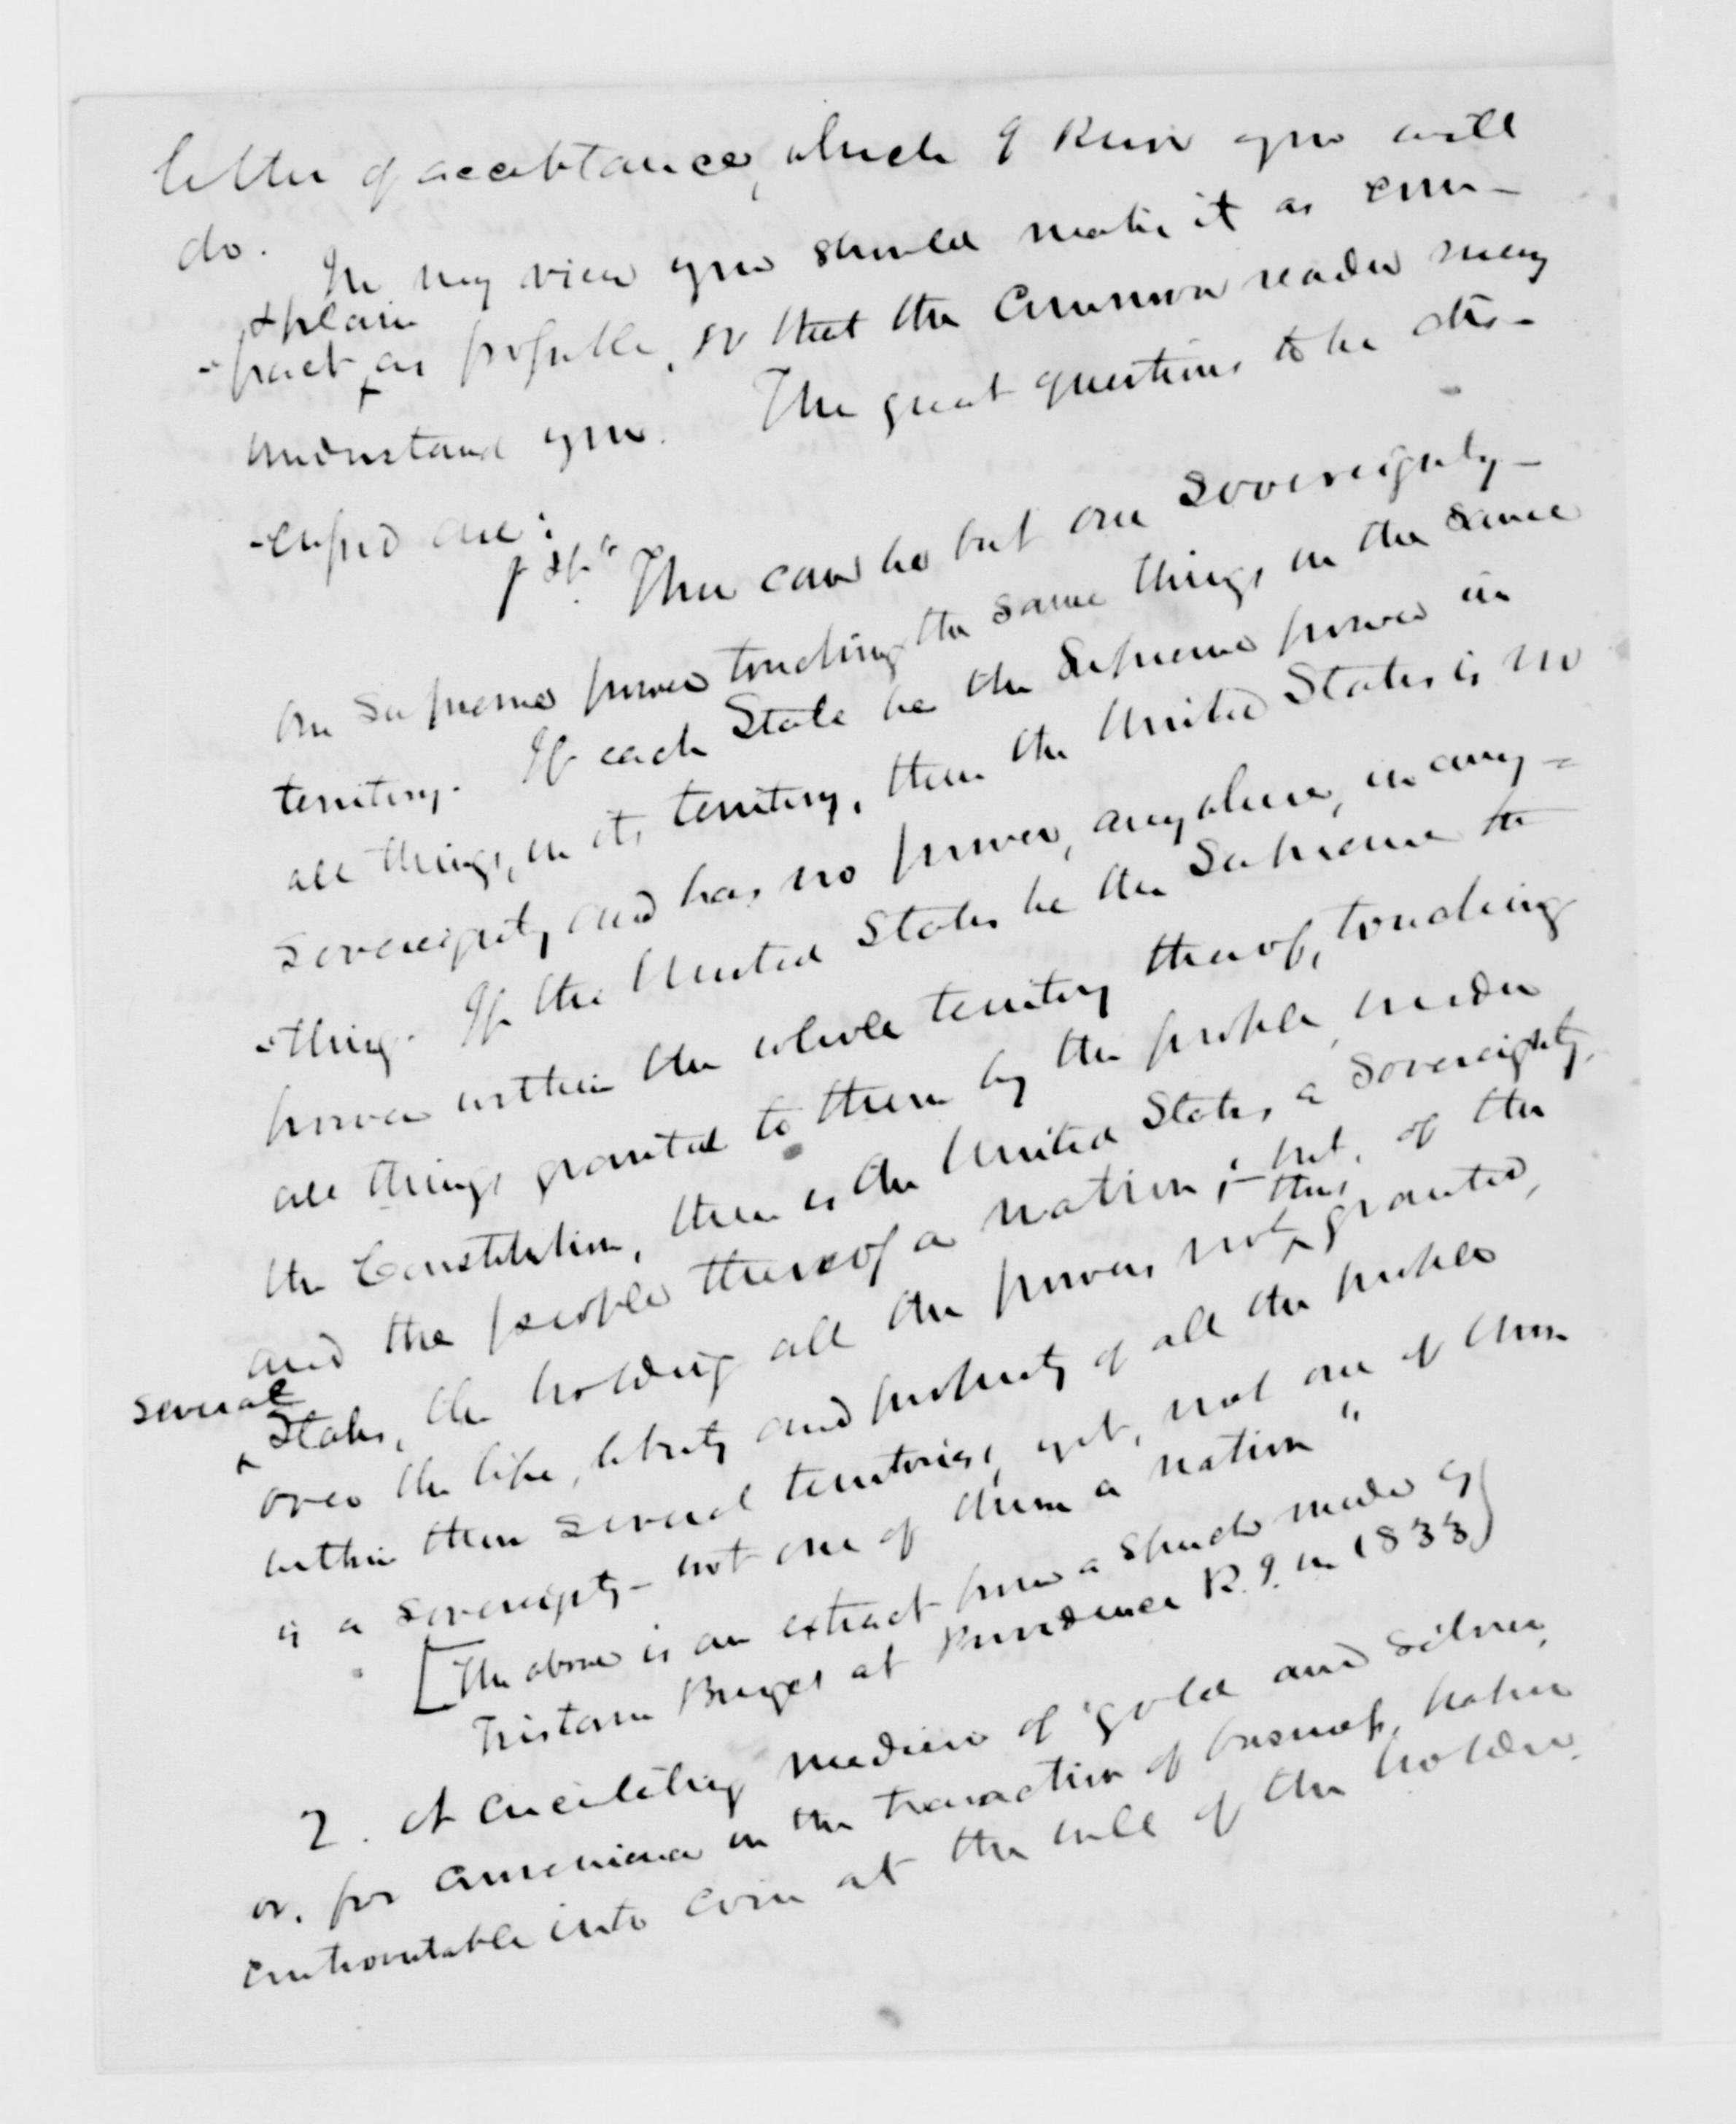 letter of acceptance, which I know you will
do.
In my view you should make it as com-
& plain
-pact as possible, so that the Common reader may
understand you. The great questions to be dis-
-cussed are:
1st. "There can be but one sovereignty—
one supreme power touching the same things, in the same
territory. If each State be the Supreme power in
all things, in its territory, then the United States is no
sovereignty, and has no power, anywhere, in any=
=thing. If the United States be the Supreme
power within the whole territory thereof, touching
all things granted to them by the people, under
the Constitution, then is the United States, a Sovereignty,
and the people thereof a nation; but, of the
several
States, tho holding all the powers not thus granted,
over the life, liberty and property of all the people
within their several territories, yet, not one of them
is a sovereignty— not one of them a nation"
[The above is an extract from a speech made by
Tristam Burges at Providence R.I. in 1833)
2. A circulating medium of gold and silver,
or, for convenience in the transaction of business, paper
convertable into coin at the will of the holder.